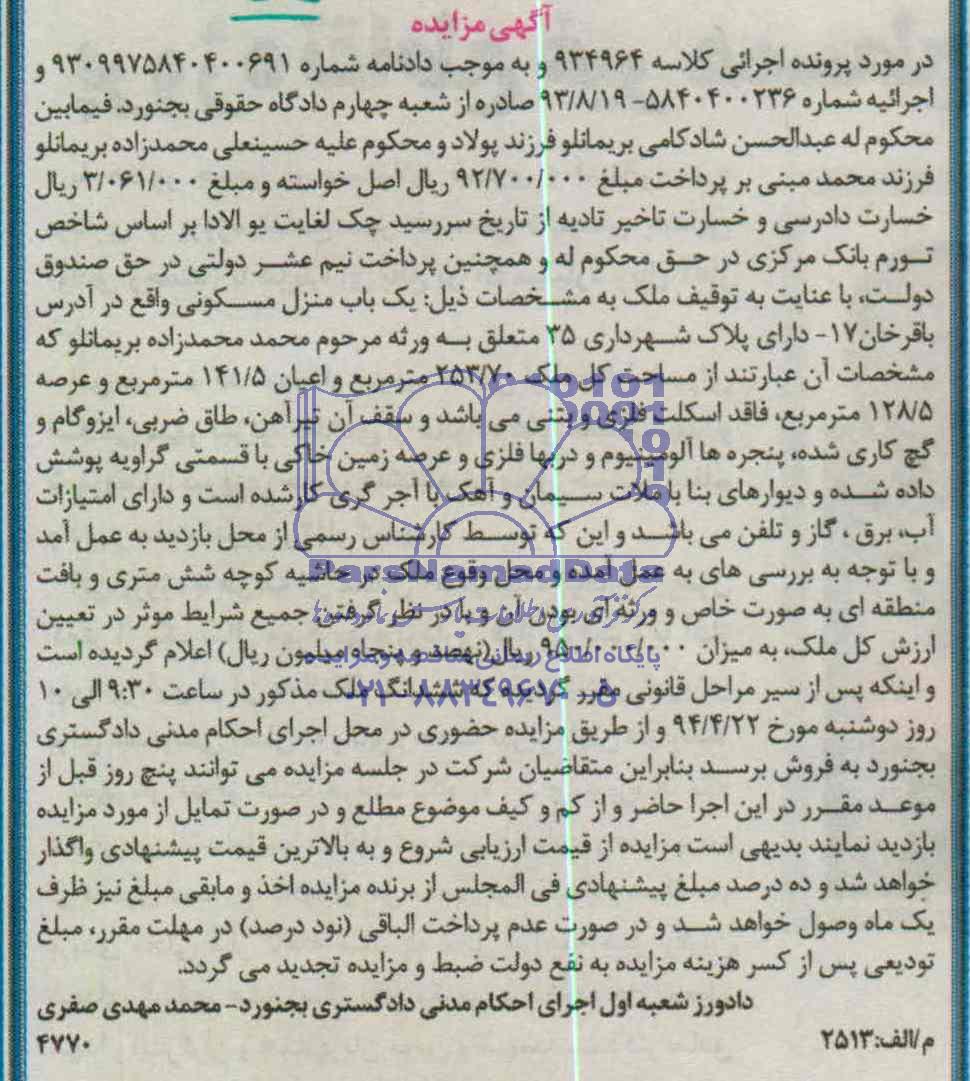 آگهی مزایده
در مورد پرونده اجرائی کلاسه ۹۳۴۹۶۴ و به موجب دادنامه شماره ۹۳۰۹۹۷۵۸۴۰۴۰۰۶۹۱ و
اجرائیه شماره ۵۸۴۰۴۰۰۲۳۶- ۹۳/۸/۱۹ صادره از شعبه چهارم دادگاه حقوقی بجنورد. فیمابین
محکوم له عبدالحسن شادکامی بریمانلو فرزند پولاد و محکوم علیه حسینعلی محمدزاده بریمانلو
فرزند محمد مبنی بر پرداخت مبلغ ۹۲/۷۰۰/۰۰۰ ریال اصل خواسته و مبلغ ۳/۰۶۱/۰۰۰ ریال
خسارت دادرسی و خسارت تاخیر تادیه از تاریخ سررسید چک لغایت یو الادا بر اساس شاخص
تورم بانک مرکزی در حق محکوم له و همچنین پرداخت نیم عشر دولتی در حق صندوق
دولت، با عنایت به توقیف ملک به مشخصات ذیل: یک باب منزل مسکونی واقع در آدرس
باقرخان۱۷- دارای پلاک شهرداری ۳۵ متعلق به ورثه مرحوم محمد محمدزاده بریمانلو که
مشخصات آن عبارتند از مساحت کل ملک ۲۵۳/۷۰ مترمربع و اعیان ۱۴۱/۵ مترمربع و عرصه
۱۲۸/۵ مترمربع، فاقد اسکلت فلزی و بتنی می باشد و سقف آن تیرآهن، طاق ضربی، ایزوگام و
گچ کاری شده، پنجره ها آلومینیوم و دربها فلزی و عرصه زمین خاکی با قسمتی گراویه پوشش
داده شده و دیوارهای بنا با ملات سیمان و آهک با آجر گری کار شده است و دارای امتیازات
آب، برق ، گاز و تلفن می باشد و این که توسط کارشناس رسمی از محل بازدید به عمل آمد
و با توجه به بررسی های به عمل آمده و محل وقوع ملک در حاشیه کوچه شش متری و بافت
منطقه ای به صورت خاص و ورثه ای بودن آن و با در نظر گرفتن جمیع شرایط موثر در تعیین
ارزش کل ملک، به میزان ۹۵۰/۰۰۰/۰۰۰ ریال(نهصد و پنجاه میلیون ریال) اعلام گردیده است
و اینکه پس از سیر مراحل قانونی مقرر گردیده که ششدانگ ملک مذکور در ساعت ۹:۳۰ الی ۱۰
روز دوشنبه مورخ ۹۴/۴/۲۲ و از طریق مزایده حضوری در محل اجرای احکام مدنی دادگستری
بجنورد به فروش برسد بنابراین متقاضیان شرکت در جلسه مزایده می توانند پنج روز قبل از
موعد مقرر در این اجرا حاضر و از کم و کیف موضوع مطلع و در صورت تمایل از مورد مزایده
بازدید نمایند بدیهی است مزایده از قیمت ارزیابی شروع و به بالاترین قیمت پیشنهادی واگذار
خواهد شد و ده درصد مبلغ پیشنهادی فی المجلس از برنده مزایده اخذ و مابقی مبلغ نیز ظرف
یک ماه وصول خواهد شد و در صورت عدم پرداخت الباقی (نود درصد) در مهلت مقرر، مبلغ
تودیعی پس از کسر هزینه مزایده به نفع دولت ضبط و مزایده تجدید می گردد.
دادورز شعبه اول اجرای احکام مدنی دادگستری بجنورد- محمد مهدی صفری
م/الف:۲۵۱۳
۴۷۷۰
ParsNamadData
پایگاه اطلاع رسانی مناقصه و مزایده
۰۲۱-۸۸۳۴۹۶۷۰-۵